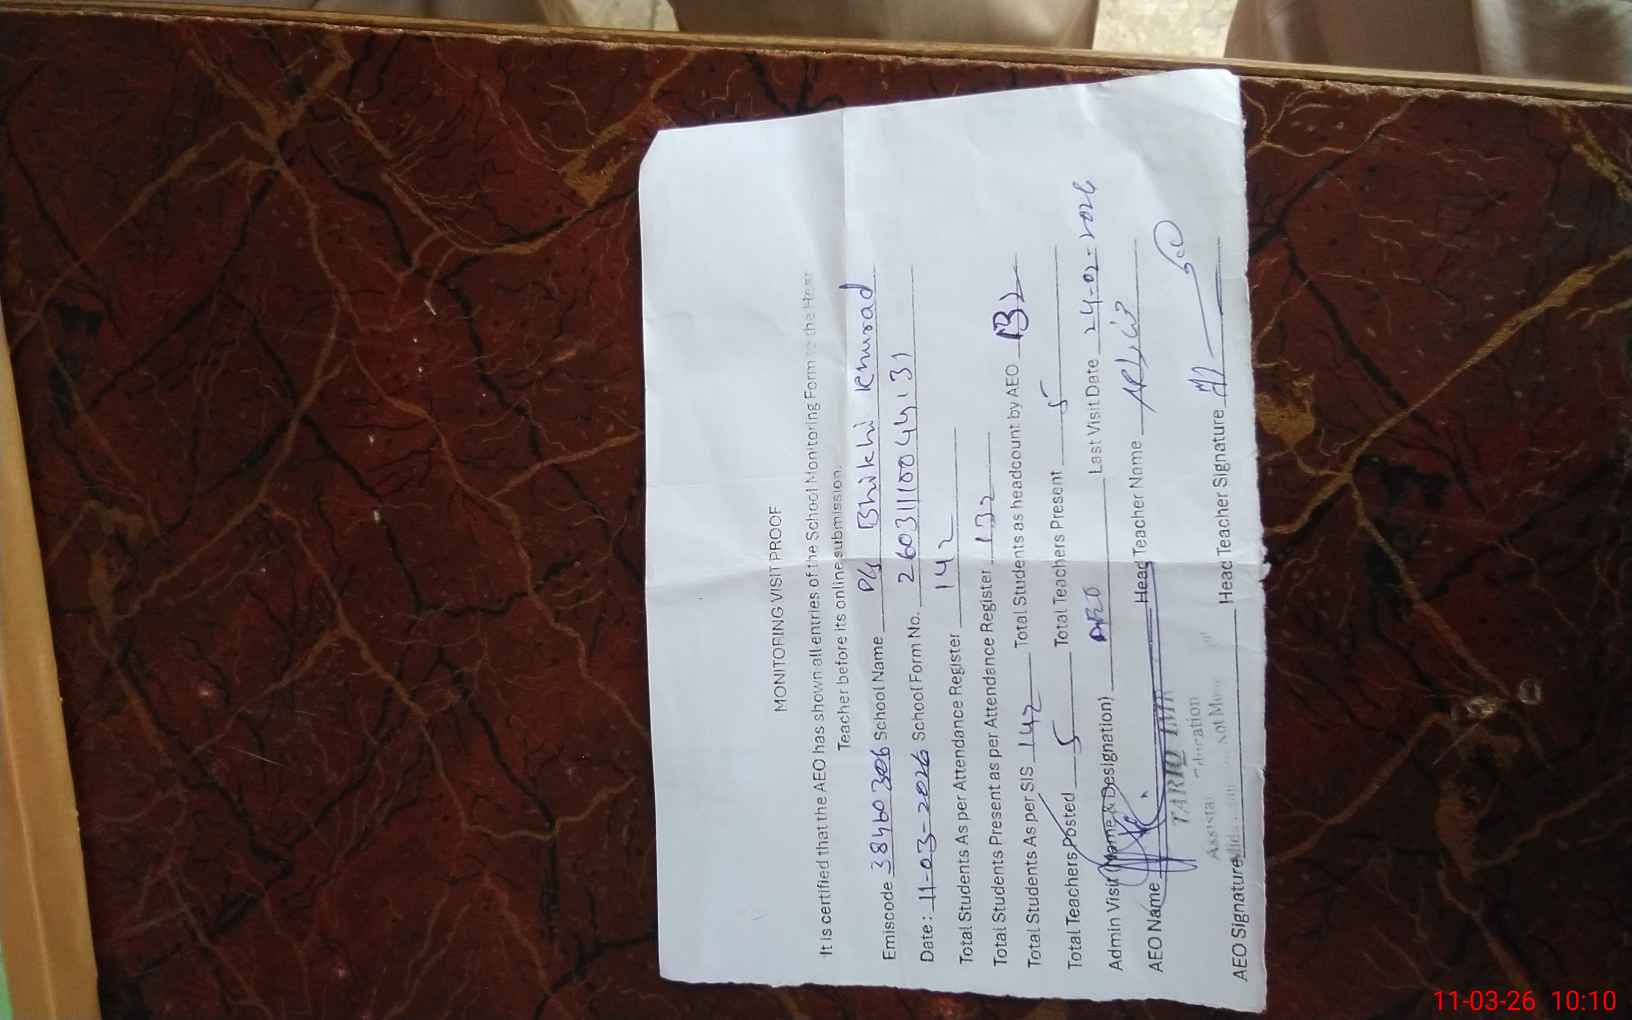 MONITORING VISIT PROOF
It is certified that the AEO has shown all entries of the School Monitoring Form to the Head
Teacher before its online submission.
Emiscode 38460306 School Name PS Bhikhi Khurad
Date: 11-03-2026 School Form No. 26031110044131
Total Students As per Attendance Register 142
Total Students Present as per Attendance Register 132
Total Students As per SIS 142 Total Students as headcount by AEO 132
Total Teachers Posted 5 Total Teachers Present 5
Admin Visit (Name & Designation) AEO Last Visit Date 24-02-2026
AEO Name Head Teacher Name
TARIQ
Education
AEO Signature Head Teacher Signature
11-03-26 10:10